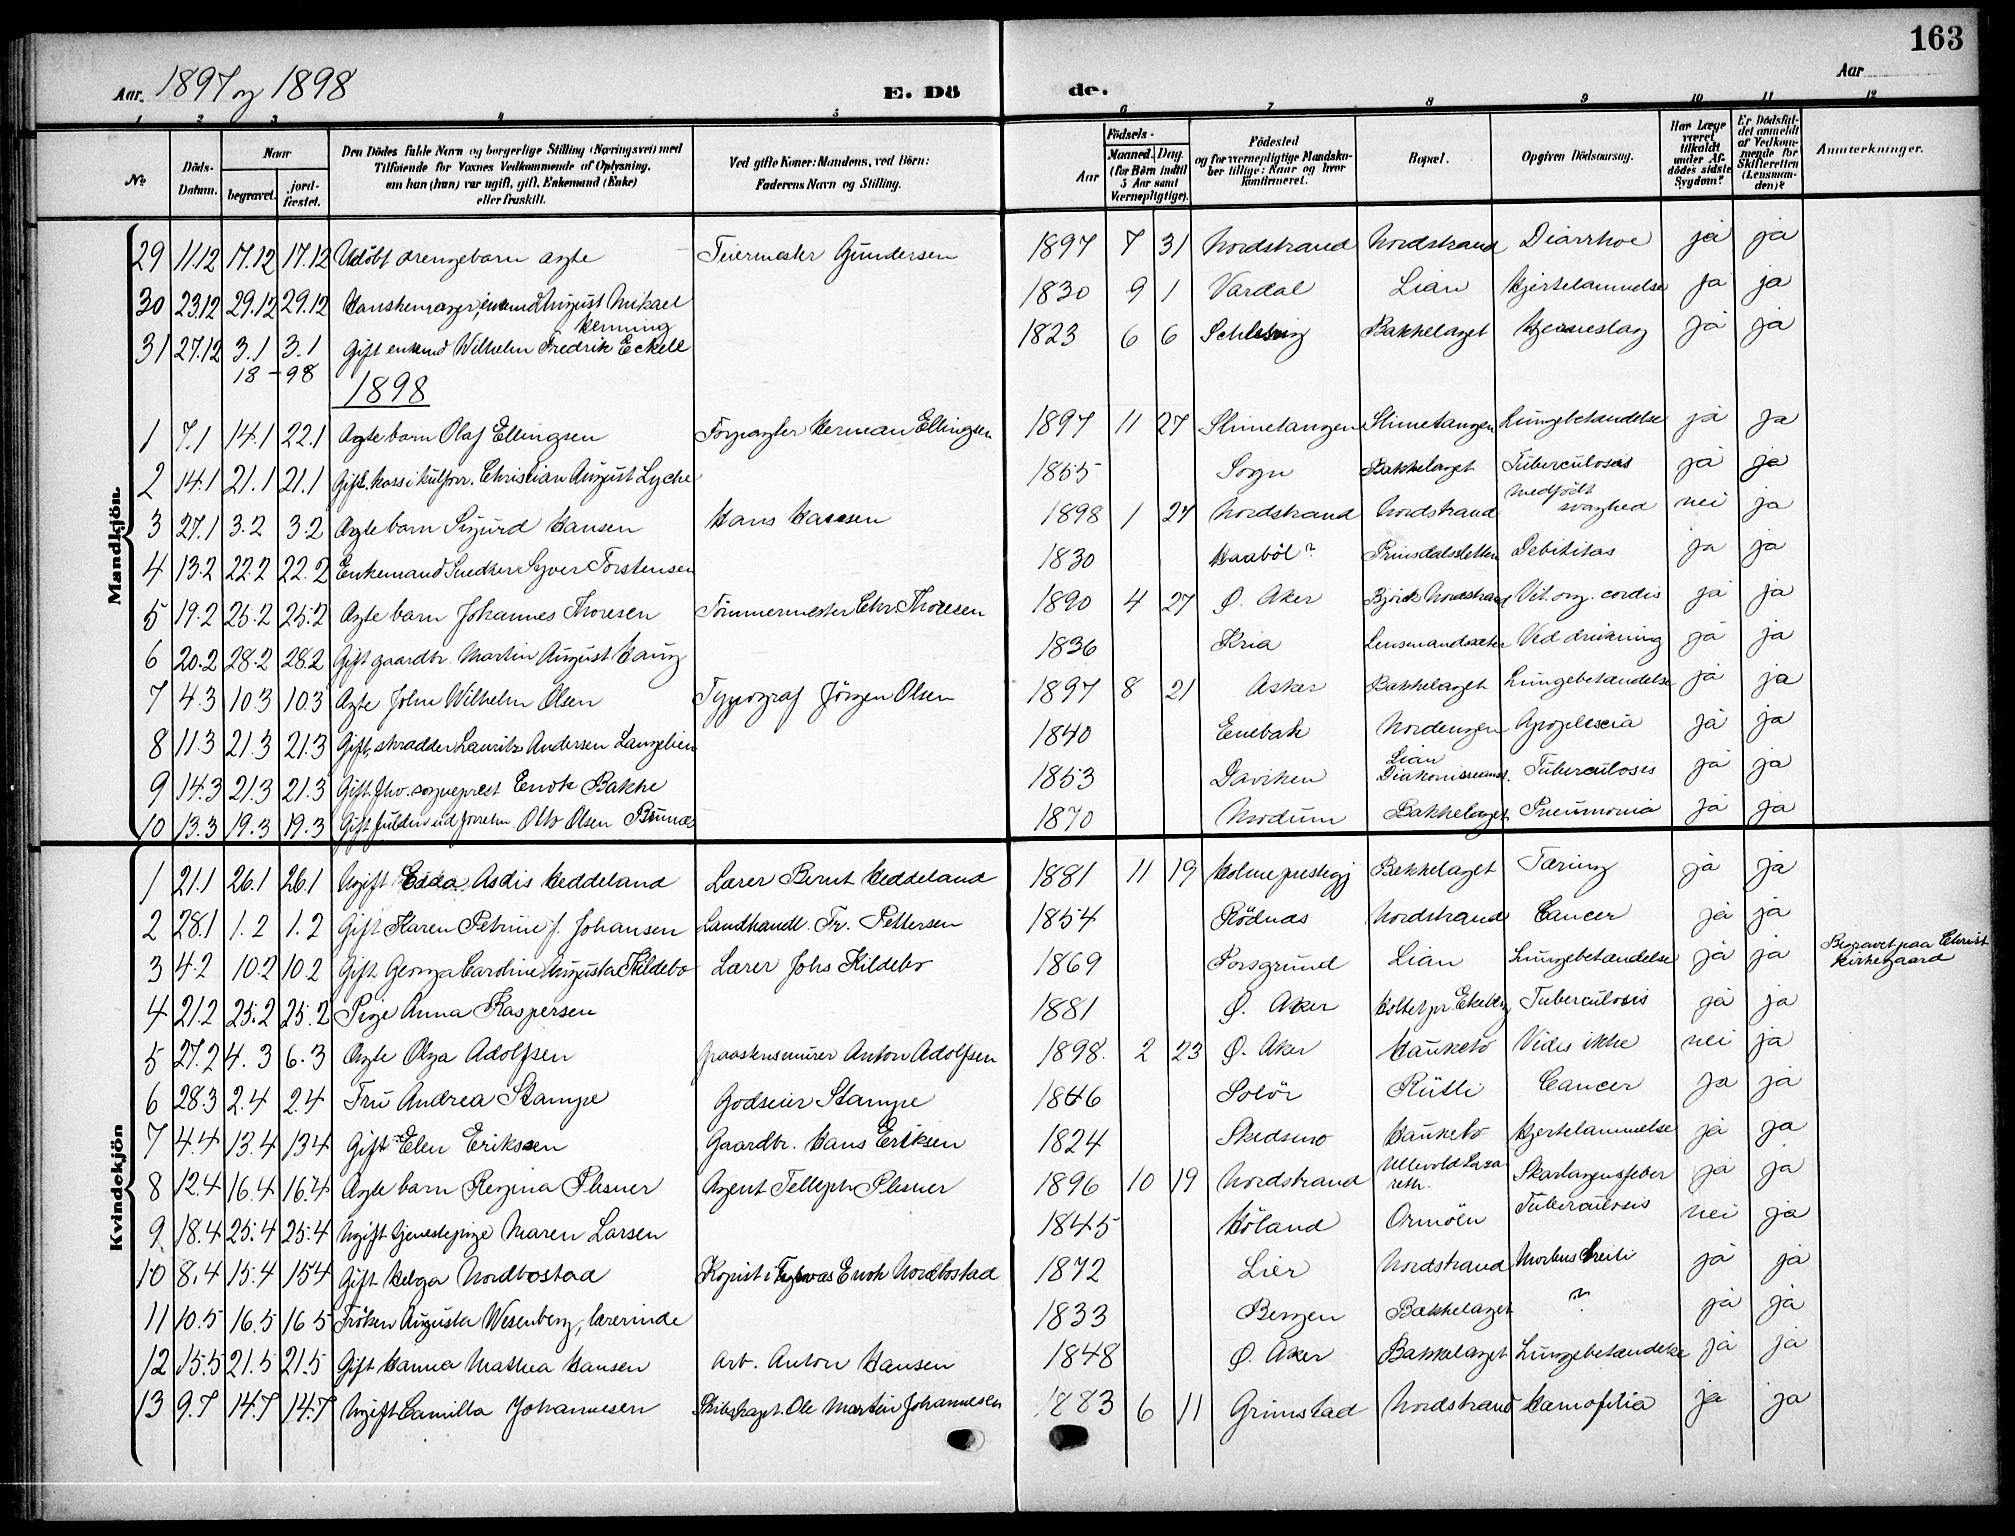 163
Aar. 1897 og 1898
E. Dö
de.
Aar
1 2 3 4 5 6 7 8 9 10 11 12
No
Döds-Datum.
Naar
begravet.
jord-fæstet.
Den Dödes fulde Navn og borgerlige Stilling (Næringsvei) med
Tilföiende for Voxnes Vedkommende af Oplysning,
om han (hun) var ugift, gift, Enkemand (Enke)
eller fraskilt.
Ved gifte Koner: Mandens, ved Börn:
Faderens Navn og Stilling.
Födsels-
Aar
Maaned. Dag.
(for Börn indtil
5 Aar samt
Værnepligtige).
Födested
og for værnepligtige Mandska-
ber tillige: Naar og hvor
konfirmeret.
Bopæl.
Opgiven Dödsaarsag.
Har Læge
været
tilkaldt
under Af-
dödes sidste
Sygdom?
Er Dödsfal-
det anmeldt
af Vedkom-
mende for
Skifteretten
(Lensman-
den)?
Anmærkninger.
Mandkjön.
29 11.12 17.12 17.12 Udöbt drengebarn ægte Feiermester Gundersen 1897 7 31 Nordstrand Nordstrand Diarrhoe ja ja
30 23.12 29.12 29.12 Hanskemager, August Mikael 1830 9 1 Vardal Lian Hjertelammelse ja ja
Henning
31 27.12 3.1 3.1 Gift Wilhelm Fredrik Eckell 1823 6 6 Bakkelaget ja ja
18-98
1898
1 7.1 14.1 22.1 Ægte barn Olaf Ellingsen Herman Ellingsen 1897 11 27 Slimetangen Slimetangen Lungebetændelse ja ja
2 14.1 21.1 21.1 Gift. Christian August Lyche 1855 Sogn Bakkelaget Tuberculosis ja ja
3 27.1 3.2 3.2 Ægte barn Sigurd Hansen Hans Hansen 1898 1 27 Nordstrand Nordstrand Medfödt svaghed nei ja
4 13.2 22.2 22.2 Enkemand Snedker Syver Torstensen 1830 Haaböl? Prinsdalssletten Debititas ja ja
5 19.2 25.2 25.2 Ægte barn Johannes Thoresen Tömmermester Chr. Thoresen 1890 4 27 Ø. Aker Nordstrand Vit. org. cordis ja ja
6 20.2 28.2 28.2 Gift gaardbr. Martin August Haug 1836 Kria Lensmandssæter Ved drukning ja ja
7 4.3 10.3 10.3 Ægte John Wilhelm Olsen Typograf Jörgen Olsen 1897 8 21 Asker Bakkelaget Lungebetændelse ja ja
8 11.3 21.3 21.3 Gift, skrædder Lauritz Andersen Langelien 1840 Enebak Nordengen Apoplexia ja ja
9 14.3 21.3 21.3 Gift fhv. sogneprest Enok Bakke 1853 Daviken Lian Diakonisseanst. Tuberculosis ja ja
10 13.3 19.3 19.3 Gift Otto Olsen 1870 Modum Bakkelaget Pneumonia ja ja
Kvindekjön
1 21.1 26.1 26.1 Ugift Edda Asdis Heddeland Lærer Bernt Heddeland 1881 11 19 Holme prestegj Bakkelaget Tæring ja ja
2 28.1 1.2 1.2 Gift Karen Petrine f. Johansen Landhandl. Fr. Pettersen 1854 Rödnæs Nordstrand Cancer ja ja
3 4.2 10.2 10.2 Gift Georga Caroline Augusta Kildebo Lærer Johs Kildebo 1869 Porsgrund Lian Lungebetændelse ja ja Begravet paa Christ kirkegaard
4 21.2 25.2 25.2 Pige Anna Kaspersen 1881 Ø. Aker Holtet pr. Ekeberg Tuberculosis ja ja
5 27.2 4.3 6.3 Ægte Olga Adolfsen Graastensmurer Anton Adolfsen 1898. 2 23 Ø. Aker Hauketo Vides ikke nei ja
6 28.3 2.4 2.4 Fru Andrea Stampe Godseier Stampe 1846 Solör Rütli Cancer ja ja
7 4.4 13.4 13.4 Gift Elen Eriksen Gaardbr. Hans Eriksen 1824 Skedsmo Hauketo Hjertelammelse ja ja
8 12.4 16.4 16.4 Ægte barn Regina Plesner Agent Telleph Plesner 1896 10 19 Nordstrand Ullevold Lazareth. Skarlagensfeber ja ja
9 18.4 25.4 25.4 Ugift tjenestepige Maren Larsen 1845 Höland Ormöen Tuberculosis nei ja
10 8.4 15.4 15.4 Gift Helga Nordbostad Kopist i Enok Nordbostad 1872 Lier Nordstrand Morbus Breiti ja ja
11 10.5 16.5 16.5 Fröken Augusta Wesenberg, lærerinde 1833 Bergen Bækkelaget ? ja ja
12 15.5 21.5 21.5 Gift Hanna Mathea Hansen Arb. Anton Hansen 1848 Ø. Aker Bakkelaget Lungebetændelse ja ja
13 9.7 14.7 14.7 Ugift Camilla Johannesen Skibskapt. Ole Martin Johannesen 1883 6 11 Grimstad Nordstrand Hæmofilia ja ja